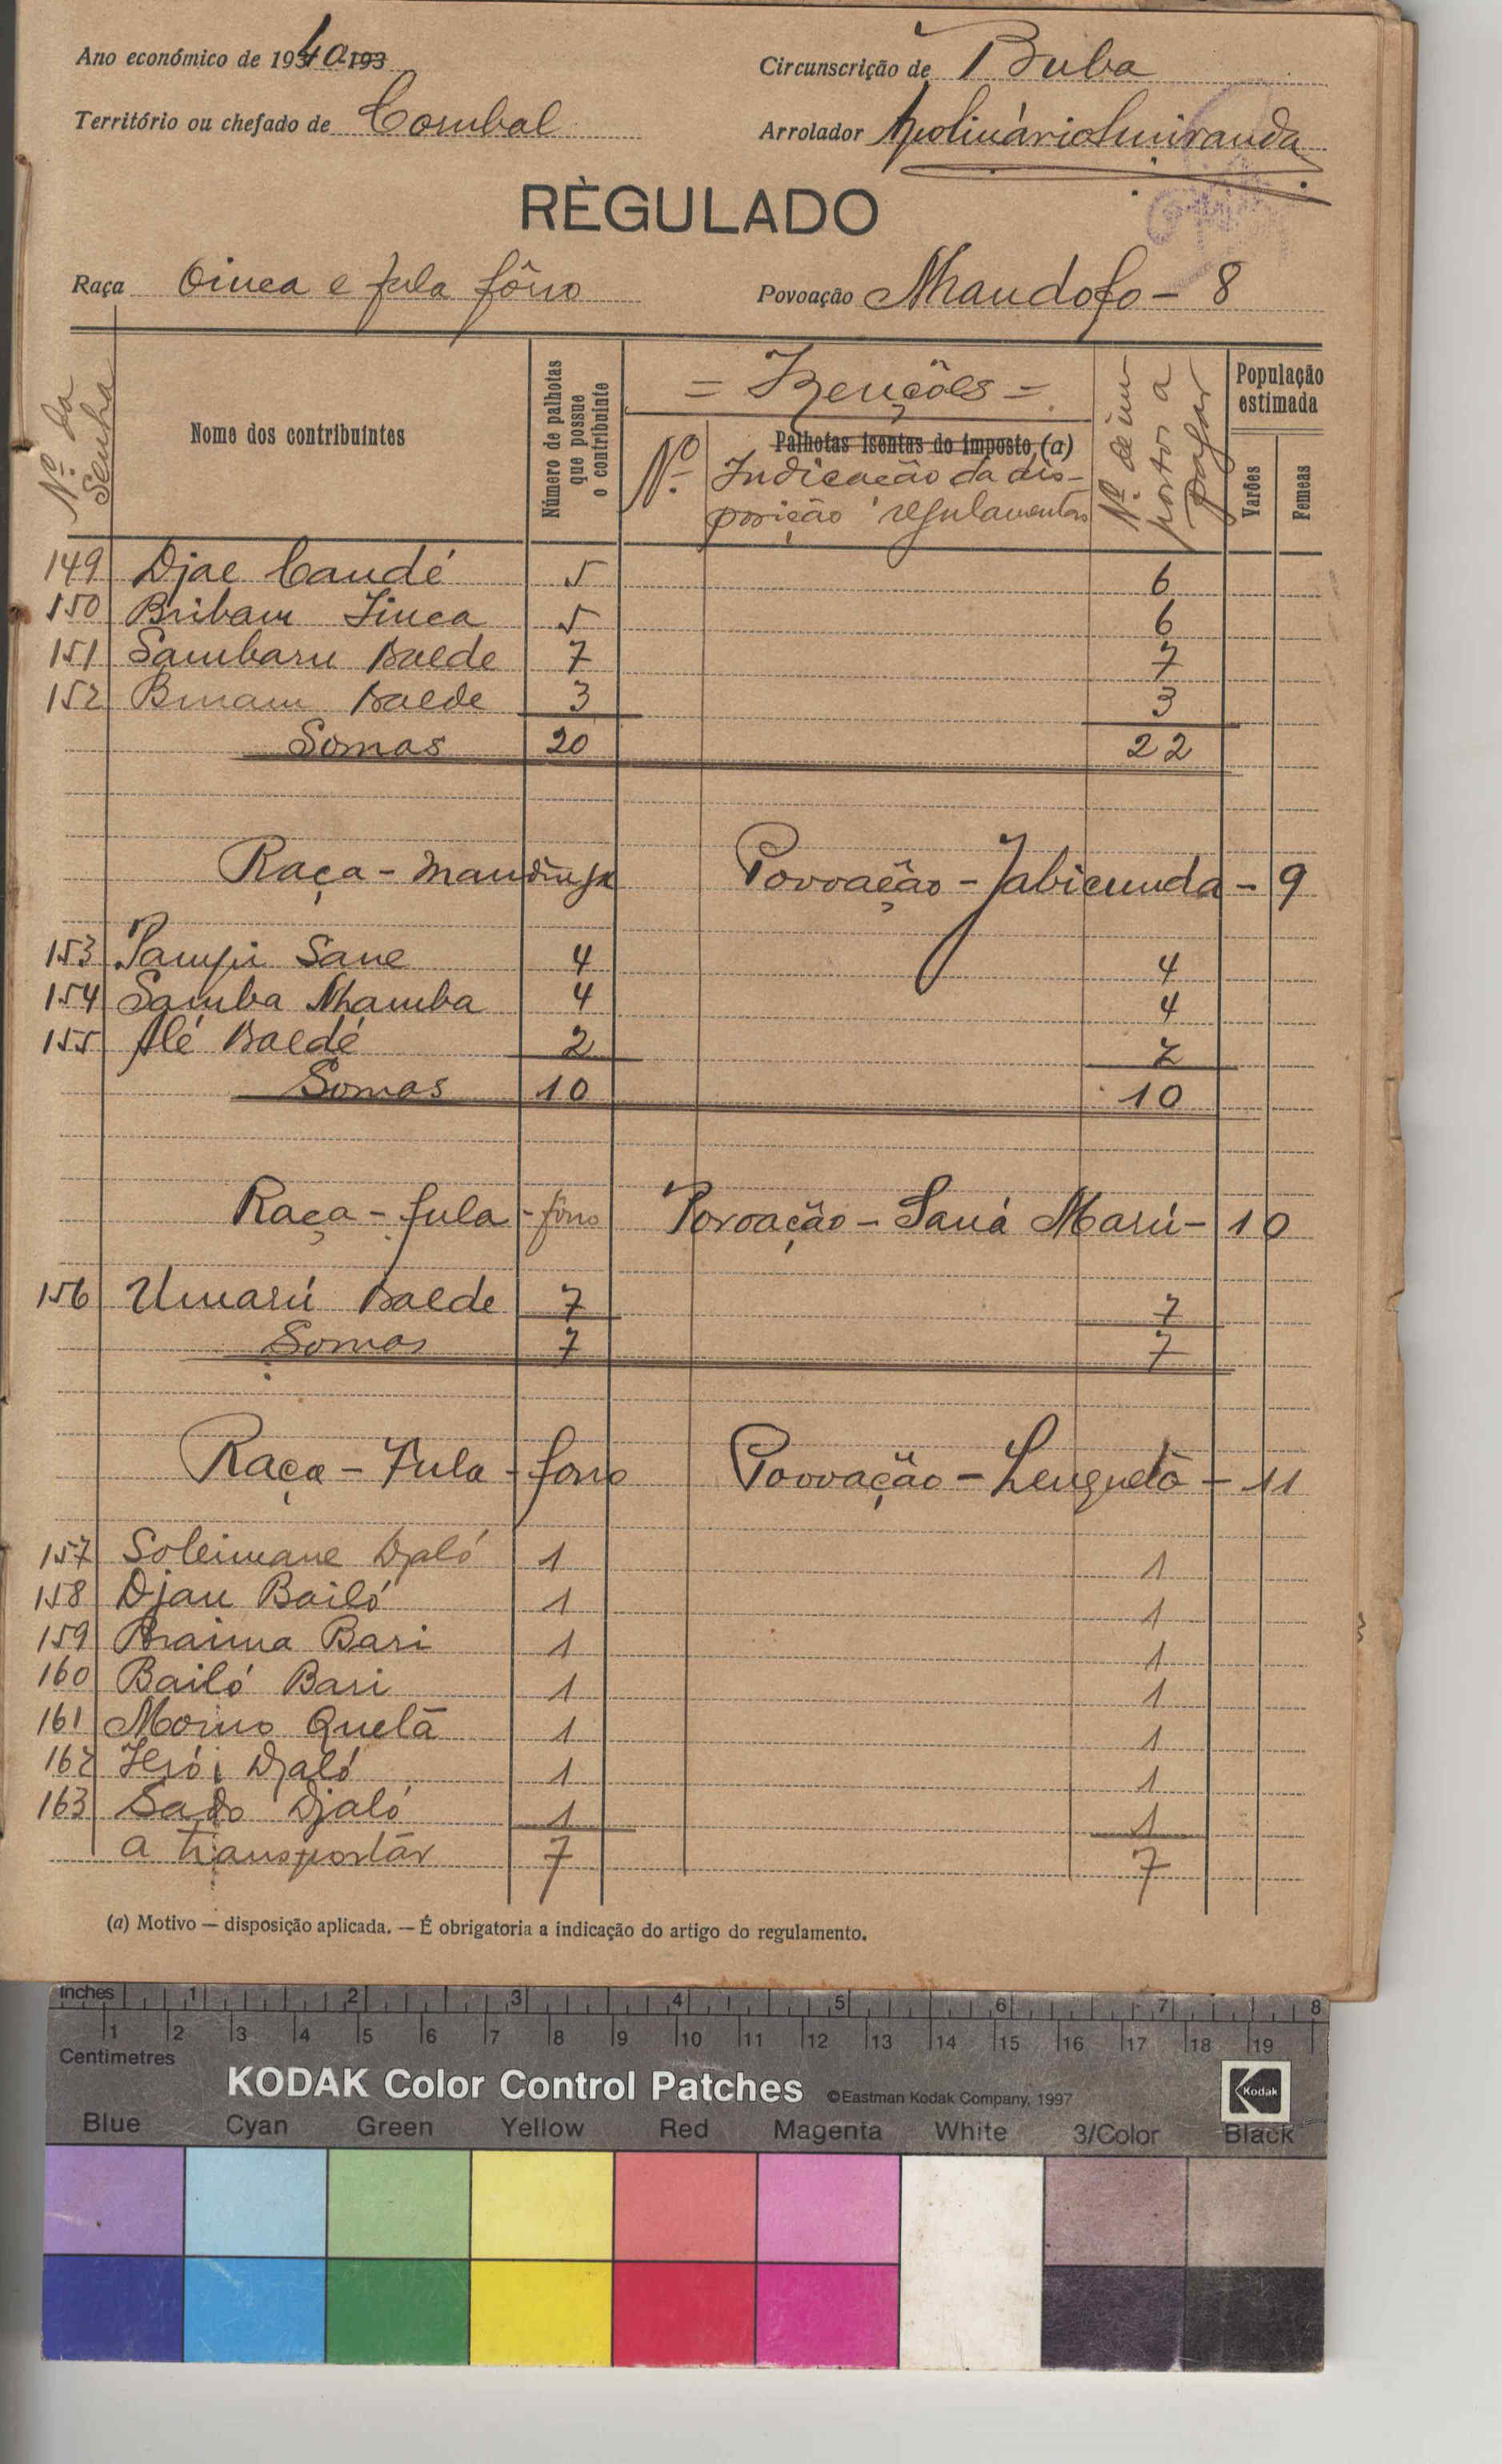 Ano económico de 1940 193
Circunscrição de Buba
Território ou chefado de Corubal
Arrolador Apolinário Smiranda
RÈGULADO
Raça Oinca e fula fôrro
Povoação Nhandofo - 8
Nº. da Senha
Nome dos contribuintes
Número de palhotas que possue o contribuinte
= Izenções =
Palhotas isentas do imposto (a)
Nº.
Indicação da disposição regulamentar
Nº. de impostos a pagar
População estimada
Varões
Femeas
149 Djae Candé 5 6
150 Bribam Jinca 5 6
151 Sambaru Balde 7 7
152 Binam Balde 3 3
Somas 20 22
Raça - Mandinga Povoação - Jabicunda - 9
153 Sane 4 4
154 Samba Nhamba 4 4
155 Alé Baldé 2 2
Somas 10 10
Raça - fula - fôrro Povoação - Saná Marú - 10
156 Umarú Balde 7 7
Somas 7 7
Raça - Fula - forro Povoação - Lenguetò - 11
157 Soleimane Djaló 1 1
158 Djau Bailó 1 1
159 Braima Bari 1 1
160 Bailó Bari 1 1
161 Morno Quetã 1 1
162 Djaló 1 1
163 Sado Djaló 1 1
a transportár 7 7
(a) Motivo — disposição aplicada. — É obrigatoria a indicação do artigo do regulamento.
Inches 1 2 3 4 5 6 7 8
1 2 3 4 5 6 7 8 9 10 11 12 13 14 15 16 17 18 19
Centimetres
KODAK Color Control Patches ©Eastman Kodak Company, 1997 Kodak
Blue Cyan Green Yellow Red Magenta White 3/Color Black